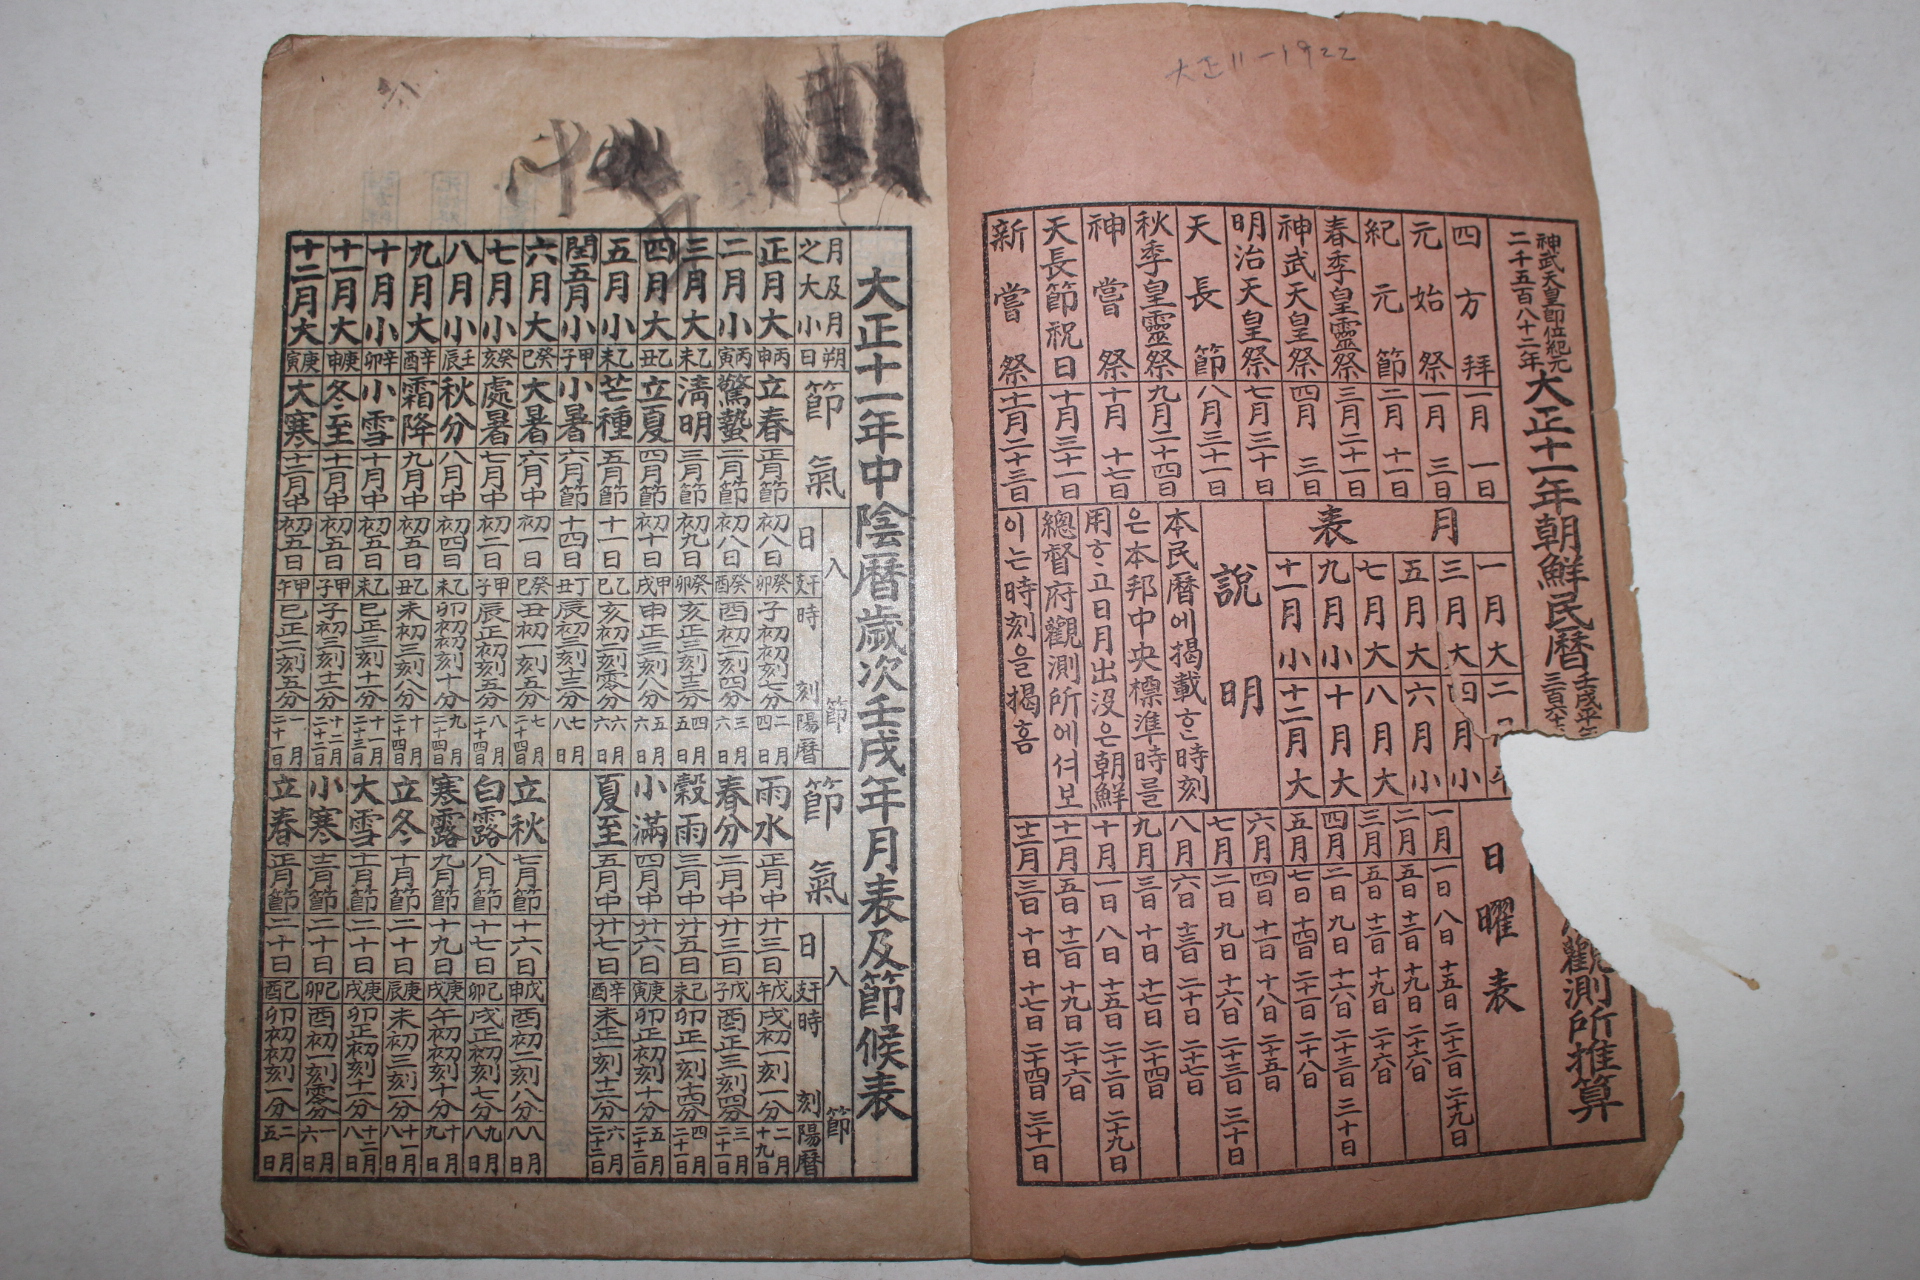 大正11-1922
神武天皇即位紀元
二千五百八十二年
大正十一年朝鮮民曆
壬戌平年
三百六十
觀測所推算
四方拜 一月一日
元始祭 一月三日
紀元節 二月十一日
春季皇靈祭 三月二十一日
神武天皇祭 四月三日
明治天皇祭 七月三十日
天長節 八月三十一日
秋季皇靈祭 九月二十四日
神嘗祭 十月十七日
天長節祝日 十月三十一日
新嘗祭 十一月二十三日
月表
一月大 二月平
三月大 四月小
五月大 六月小
七月大 八月大
九月小 十月大
十一月小 十二月大
說明
本民曆에揭載ᄒᆞᆫ時刻
은本邦中央標準時를
用ᄒᆞ고日月出沒은朝鮮
總督府觀測所에셔보
이는時刻을揭홈
日曜表
一月 一日 八日 十五日 二十二日 二十九日
二月 五日 十二日 十九日 二十六日
三月 五日 十二日 十九日 二十六日
四月 二日 九日 十六日 二十三日 三十日
五月 七日 十四日 二十一日 二十八日
六月 四日 十一日 十八日 二十五日
七月 二日 九日 十六日 二十三日 三十日
八月 六日 十三日 二十日 二十七日
九月 三日 十日 十七日 二十四日
十月 一日 八日 十五日 二十二日 二十九日
十一月 五日 十二日 十九日 二十六日
十二月 三日 十日 十七日 二十四日 三十一日
大正十一年中陰曆歲次壬戌年月表及節候表
月及月之大小 朔日 節氣 入節 日 干支 時刻 陽曆 節氣 入節 日 干支 時刻 陽曆
正月大 丙申 立春 正月節 初八日 癸卯 子初初刻七分 二月四日 雨水 正月中 廿三日 戊午 戌初一刻一分 二月十九日
二月小 丙寅 驚蟄 二月節 初八日 癸酉 酉初二刻四分 三月六日 春分 二月中 廿三日 戊子 酉正三刻四分 三月二十一日
三月大 乙未 淸明 三月節 初九日 癸卯 亥正三刻十三分 四月五日 穀雨 三月中 廿五日 己未 卯正一刻十四分 四月二十一日
四月大 乙丑 立夏 四月節 初十日 甲戌 申正三刻八分 五月六日 小滿 四月中 廿六日 庚寅 卯正初刻十分 五月二十二日
五月小 乙未 芒種 五月節 十一日 乙巳 亥初二刻零分 六月六日 夏至 五月中 廿七日 辛酉 未正一刻十二分 六月二十二日
閏五月小 甲子 小暑 六月節 十四日 丁丑 辰初三刻十三分 七月八日
六月大 癸巳 大暑 六月中 初一日 癸巳 丑初一刻五分 七月二十四日 立秋 七月節 十六日 戊申 酉初二刻八分 八月八日
七月小 癸亥 處暑 七月中 初二日 甲子 辰正初刻五分 八月二十四日 白露 八月節 十七日 己卯 戌正初刻七分 九月八日
八月小 壬辰 秋分 八月中 初四日 乙未 卯初初刻十分 九月二十四日 寒露 九月節 十九日 庚戌 午初初刻十分 十月九日
九月大 辛酉 霜降 九月中 初五日 乙丑 未初三刻八分 十月二十四日 立冬 十月節 二十日 庚辰 未初三刻一分 十一月八日
十月小 辛卯 小雪 十月中 初五日 乙未 巳正三刻十一分 十一月二十三日 大雪 十一月節 二十日 庚戌 卯正初刻十一分 十二月八日
十一月大 庚申 冬至 十一月中 初五日 甲子 子初三刻十二分 十二月二十二日 小寒 十二月節 二十日 己卯 酉初一刻零分 一月六日
十二月大 庚寅 大寒 十二月中 初五日 甲午 巳正二刻五分 一月二十一日 立春 正月節 二十日 己酉 卯初初刻一分 二月五日